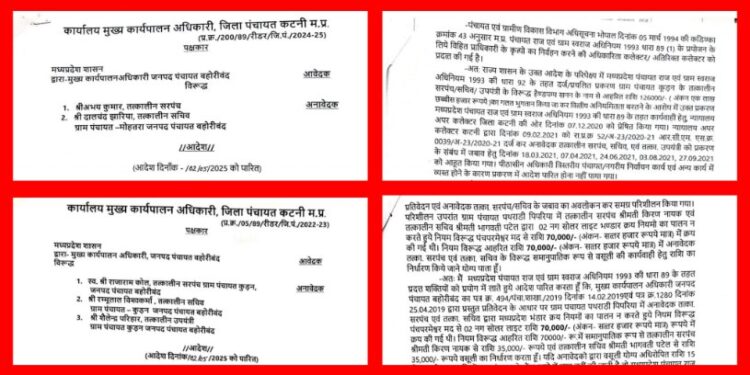 कार्यालय मुख्य कार्यपालन अधिकारी, जिला पंचायत कटनी म.प्र.
(प्र.क्र./200/89/रीडर/जि.पं./2024-25)
पक्षकार
मध्यप्रदेश शासन
द्वारा-मुख्य कार्यपालनअधिकारी जनपद पंचायत बहोरीबंद
आवेदक
विरूद्ध
1. श्रीअभय कुमार, तत्कालीन सरपंच
अनावेदक
2. श्री दालचंद झारिया, तत्कालीन सचिव
ग्राम पंचायत –मोहतरा जनपद पंचायत बहोरीबंद
//आदेश//
(आदेश दिनाँक- /02/05/2025 को पारित)
-पंचायत एवं ग्रामीण विकास विभाग अधिसूचना भोपाल दिनांक 05 मार्च 1994 की कंडिका
क्रमांक 43 अनुसार म.प्र. पंचायत राज एवं ग्राम स्वराज अधिनियम 1993 धारा 89 (1) के प्रयोजन के
लिये विहित प्राधिकारी के कृत्यों का निर्वहन करने की अधिकारिता कलेक्टर/ अतिरिक्त कलेक्टर को
प्रदत्त की गई है।
-अतः राज्य शासन के उक्त आदेश के परिपेक्ष्य में मध्यप्रदेश पंचायत राज एवं ग्राम स्वराज
अधिनियम 1993 की धारा 92 के तहत दर्ज/प्रचलित प्रकरण ग्राम पंचायत कूड़न के तत्कालीन
सरपंच/सचिव/ उपयंत्री के विरूद्ध हैण्डपम्प खनन के नाम से आहरित राशि 126000/- ( अंकन एक लाख
छब्बीस हजार रूपये)का गलत भुगतान किया जा कर वित्तीय अनियमितता बरतने के आरोप में उक्त प्रकरण
मध्यप्रदेश पंचायत राज एवं ग्राम स्वराज अधिनियम 1993 की धारा 89 के तहत कार्यवाही हेतु न्यायालय
अपर कलेक्टर जिला कटनी की ओर दिनांक 07.12.2020 को प्रेषित किया गया। न्यायालय अपर
कलेक्टर कटनी द्वारा दिनांक 09.02.2021 को रा.प्र.क्र 52/अ-23/2020-21 आर.सी.एम.एस.क्र.
0039/अ-23/2020-21 दर्ज कर अनावेदक तत्कालीन सरपंच, सचिव, एवं तत्का. उपयंत्री को प्रकरण
के संबंध में जवाब हेतु दिनांक 18.03.2021, 07.04.2021, 24.06.2021, 03.08.2021, 27.09.2021
को आहूत किया गया। पीठासीन अधिकारी त्रिस्तरीय पंचायत/नगरीय निर्वाचन कार्य एवं अन्य कार्य में
व्यस्त होने के कारण प्रकरण में आदेश पारित होना नहीं पाया गया।
कार्यालय मुख्य कार्यपालन अधिकारी, जिला पंचायत कटनी म.प्र.
(प्र.क्र./05/89/रीडर/जि.पं./2022-23)
पक्षकार
मध्यप्रदेश शासन
द्वारा- मुख्य कार्यपालन अधिकारी, जनपद पंचायत बहोरीबंद
आवेदक
विरूद्ध
1. स्व. श्री राजाराम कोल, तत्कालीन सरपंच ग्राम पंचायत कुड़न,
जनपद पंचायत बहोरीबंद
अनावेदक
2. श्री रम्मूलाल विश्वकर्मा , तत्कालीन सचिव
ग्राम पंचायत – कुड़न जनपद पंचायत बहोरीबंद
3. श्री शैलेन्द्र परिहार, तत्कालीन उपयंत्री
जनपद पंचायत बहोरीबंद
//आदेश//
(आदेश दिनांक/02/05/2025 को पारित)
प्रतिवेदन एवं अनावेदक तत्का. सरपंच/सचिव के जबाव का अवलोकन कर समग्र परिशीलन किया गया।
परिशीलन उपरांत ग्राम पंचायत पथराड़ी पिपरिया में तत्कालीन सरपंच श्रीमती किरण नायक एवं
तत्कालीन सचिव श्रीमती भागवती पटेल द्वारा 02 नग सोलर लाइट भण्डार क्रय नियमों का पालन न
करते हुये नियम विरूद्ध पंचपरमेश्वर मद से राशि 70,000/- (अंकन- सत्तर हजार रूपये मात्र) में क्रय
की गई थी। नियम विरूद्ध आहरित राशि 70,000/- (अंकन- सत्तर हजार रूपये मात्र) में अनावेदक
तत्का. सरपंच, सचिव के विरूद्ध समानुपातिक रूप से वसूली की कार्यवाही हेतु राशि का
निर्धारण किये जाने योग्य पाता हूँ।
-अतः मैं मध्यप्रदेश पंचायत राज एवं ग्राम स्वराज अधिनियम 1993 की धारा 89 के तहत
प्रदत्त शक्तियों को प्रयोग में लाते हुये आदेश पारित करता हूँ कि, मुख्य कार्यपालन अधिकारी जनपद
पंचायत बहोरीबंद का पत्र क्र. 494/पंचा.शाखा./2019 दिनांक 14.02.2019एवं पत्र क्र.1280 दिनांक
25.04.2019 द्वारा प्रस्तुत प्रतिवेदन के आधार पर ग्राम पंचायत पथराड़ी पिपरिया में अनावेदक तत्का.
सरपंच एवं तत्का. सचिव द्वारा मध्यप्रदेश भंडार क्रय नियमों का पालन न करते हुये नियम विरूद्ध
पंचपरमेश्वर मद से 02 नग सोलर लाइट राशि 70,000/- (अंकन- सत्तर हजार रूपये मात्र) में क्रय
की गई थी। नियम विरूद्ध आहरित राशि 70000/- रू.में समानुपातिक रूप से तत्कालीन सरपंच
श्रीमती किरण नायक से राशि 35,000/- रूपये एवं तत्कालीन सचिव श्रीमती भागवती पटेल से राशि
35,000/- रूपये वसूली का निर्धारण करता हूँ। यदि अनावेदकों द्वारा वसूली योग्य अधिरोपित राशि 15